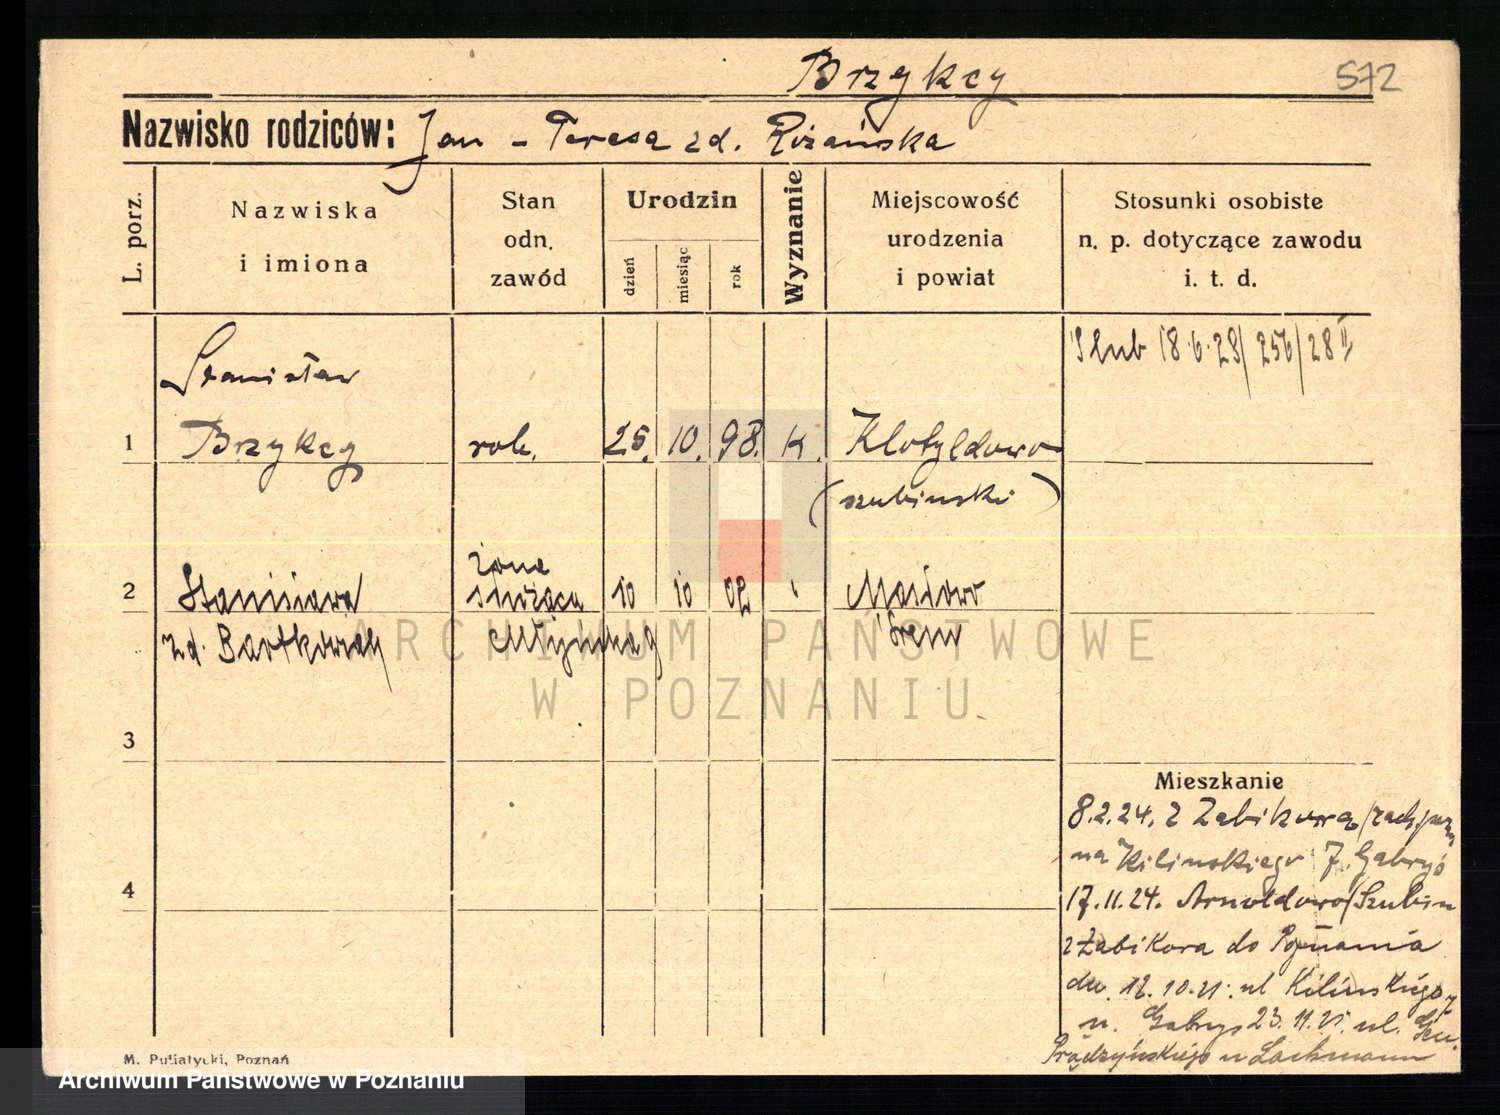 Brzykcy
572
Nazwisko rodziców: Jan - Teresa zd. Różańska
L. porz.
Nazwiska
i imiona
Stan
odn.
zawód
Urodzin
dzień
miesiąc
rok
Wyznanie
Miejscowość
urodzenia
i powiat
Stosunki osobiste
n. p. dotyczące zawodu
i. t. d.
Ślub 18.6.28/256/28 II
Stanisław
1 Brzykcy rob. 25. 10. 98. K. Klotyldowo
(szubiński)
żona
2 Stanisława służąca 10 10 02 Masłowo
zd. Bartkowiak Śrem
ARCHIWUM PAŃSTWOWE
W POZNANIU
3
Mieszkanie
8.2.24. z Żabikowa/zach.
na Kilińskiego 7. Gabryś
4
17.11.24. Arnoldowo/Szubin
z Żabikowa do Poznania
du. 12.10.21: ul Kilińskiego 7
u. Gabryś 23.11.21. ul. Gen.
Prądzyńskiego u Lachmann
M. Putiatycki, Poznań
Archiwum Państwowe w Poznaniu